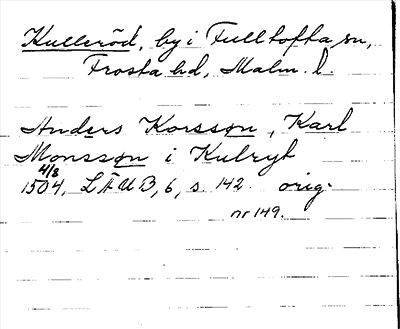 Kulleröd, by i Fulltofta sn,
Frosta hd, Malm. l.
Anders Korssøn, Karl
Monssøn i Kulryt
4/8
1504, LÄUB, 6, s. 142 orig.
nr 149.